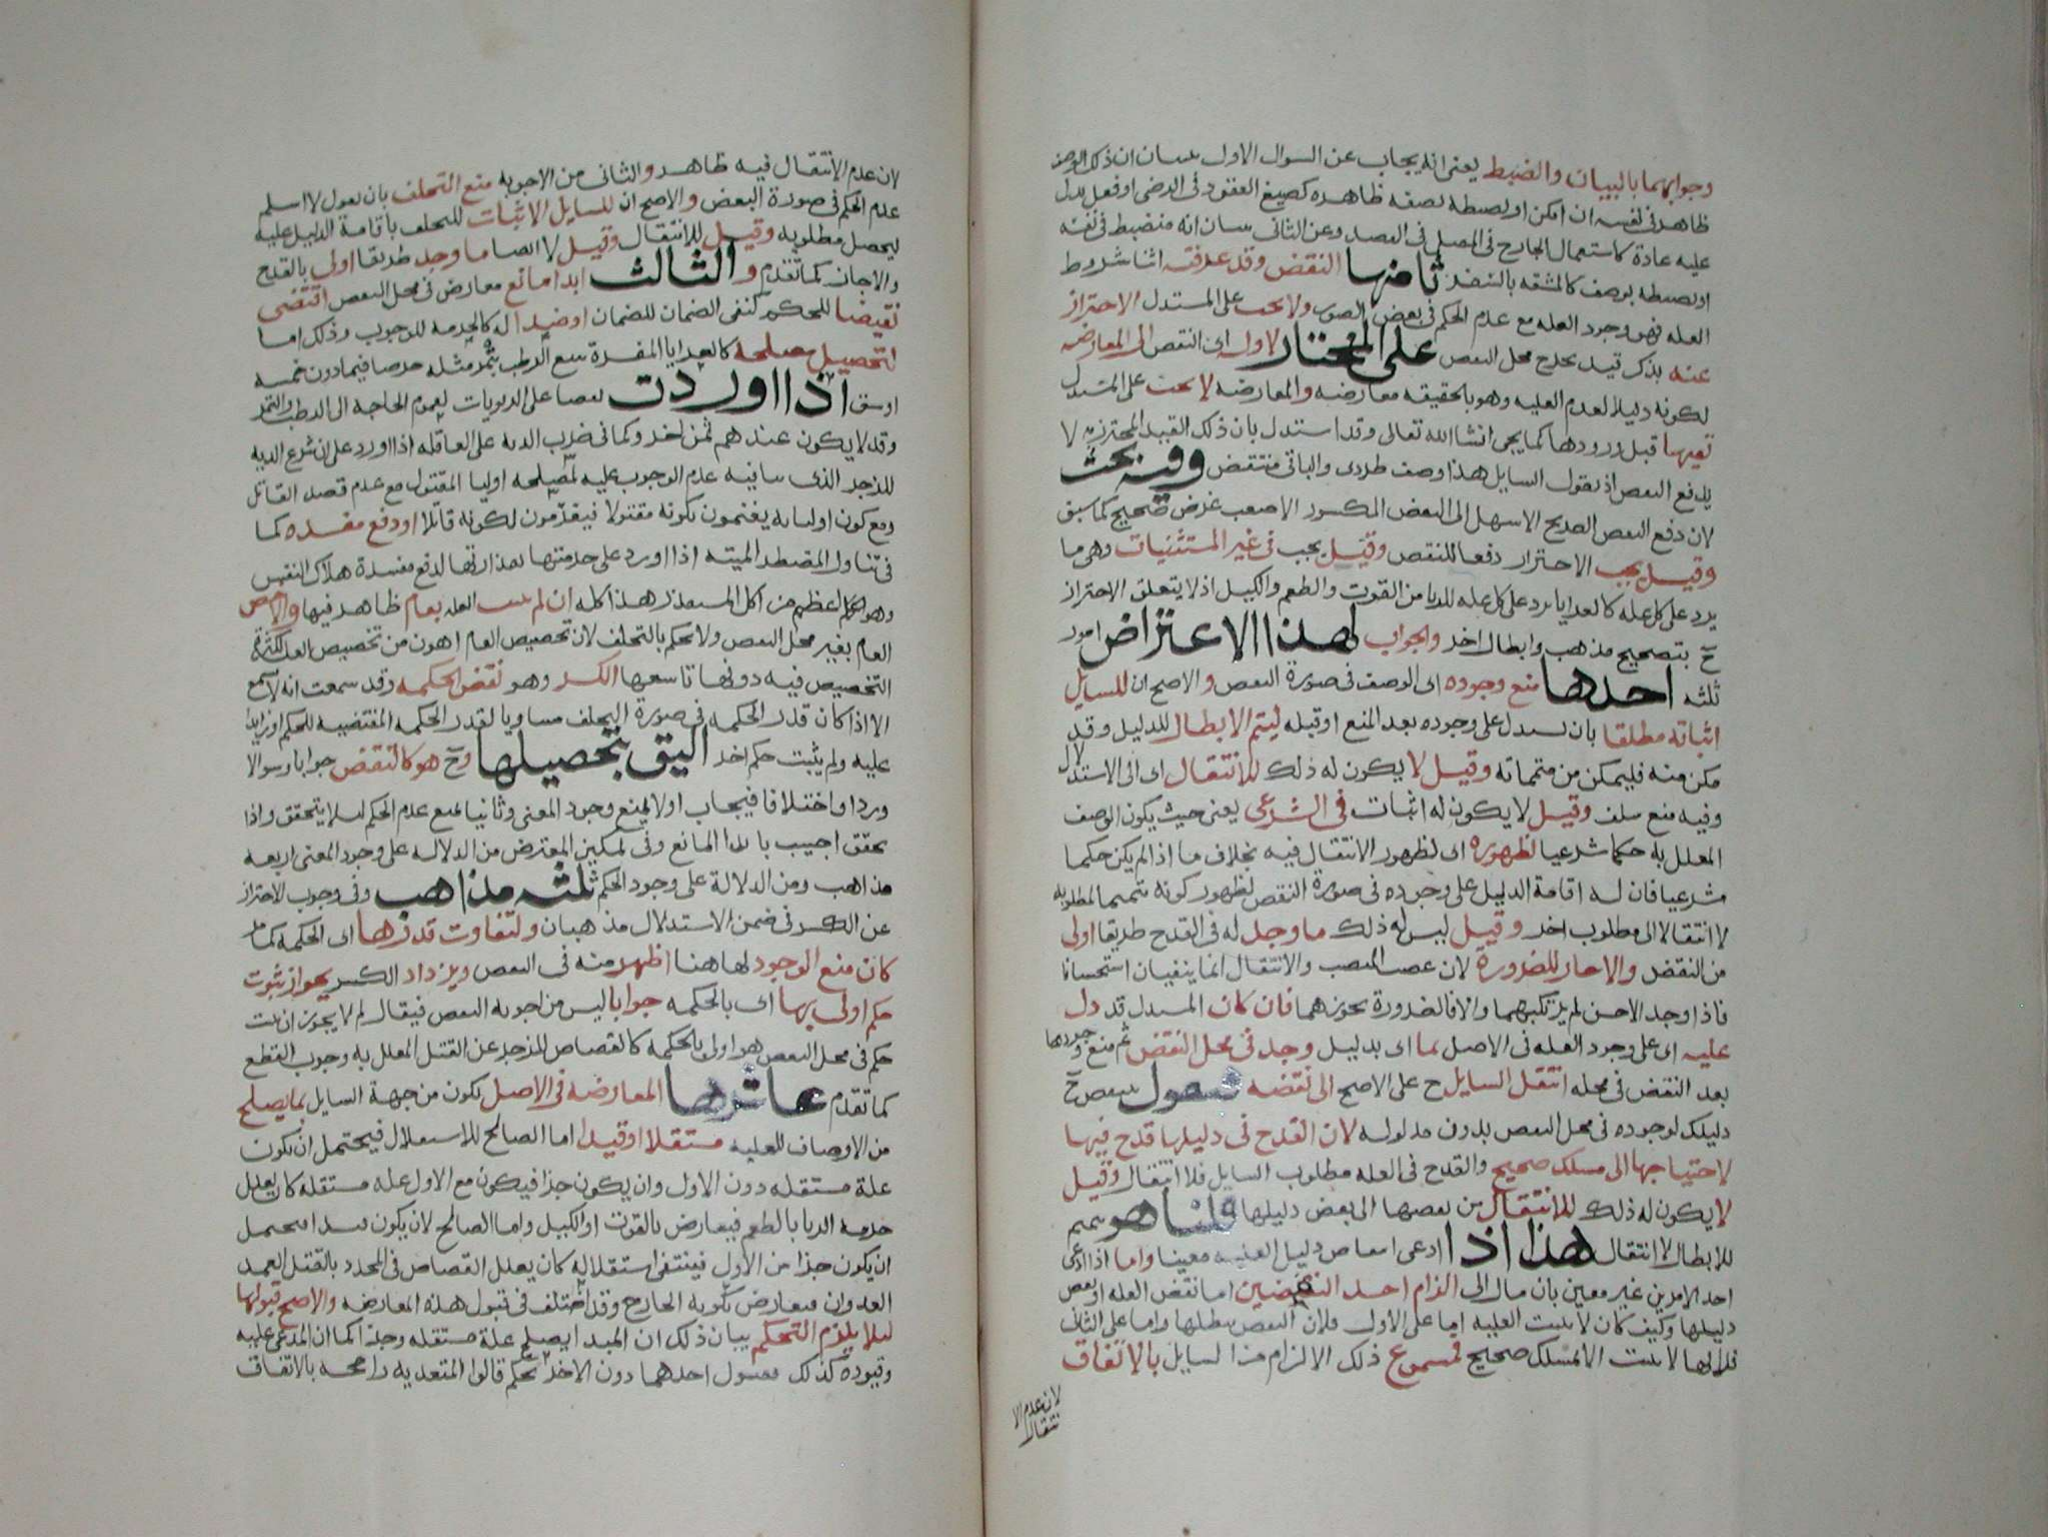 وجوابهما بالبيان والضبط يعنى انه يجاب عن السوال الاول ببيان ان ذلك الوصف
ظاهر فى نفسه ان امكن او بضبطه بصفه ظاهره كصيغ العقود فى الرضى او فعل يدل
عليه عادة كاستعمال الجارح فى القتل فى العمد وعن الثانى ببيان انه منضبط فى نفسه
او بضبطه بوصف كالمشقه بالسفر ثامنها النقض وقد عرفته اثنا شروط
العله فهو وجود العله مع عدم الحكم فى بعض الصور ولا يجب على المستدل الاحتراز
عنه بذكر قيد يخرج محل النقض على المختار لاوله اى النقض الى المعارضه
لكونه دليلا لعدم العليه وهو بالحقيقه معارضه والمعارضه لا يجب على المستدل
نفيها قبل ورودها كما يجى انشا الله تعالى وقد استدل بان ذلك القيد المحترز به لا
يدفع النقض اذ يقول السايل هذا وصف طردى والباقى منتقض وفيه بحث
لان دفع النقض الصريح الاسهل الى النقض المكسور الاصعب غرض صحيح كما سبق
وقيل يجب الاحتراز دفعا للنقض وقيل يجب فى غير المستثنيات وهى ما
يرد على كل عله كالعرايا يرد على كل عله للربا من القوت والطعم والكيل اذ لا يتعلق الاحتراز
ح بتصحيح مذهب وابطال اخر والجواب لهذا الاعتراض امور
ثلثه احدها منع وجوده اى الوصف فى صورة النقض والاصح ان للسايل
اثباته مطلقا بان يستدل على وجوده بعد المنع او قبله ليتم الابطال للدليل وقد
مكن منه فليمكن من متمماته وقيل لا يكون له ذلك للانتقال اى الى الاستدلال
وفيه منع سلف وقيل لا يكون له اثبات فى الشرعى يعنى حيث يكون الوصف
المعلل به حكما شرعيا لظهوره اى لظهور الانتقال فيه بخلاف ما اذا لم يكن حكما
شرعيا فان له اقامة الدليل على وجوده فى صورة النقض لظهور كونه متمما لمطلوبه
لا انتقالا الى مطلوب اخر وقيل ليس له ذلك ما وجد له فى القدح طريقا اولى
من النقض والا جاز للضرورة لان غصب المنصب والانتقال انما ينفيان استحسانا
فاذا وجد الاحسن لم يرتكبهما والا فالضرورة تجوزهما فان كان المستدل قد دل
عليه اى على وجود العله فى الاصل بما اى بدليل وجد فى محل النقض ثم منع وجودها
بعد النقض فى محله انتقل السايل ح على الاصح الى نقضه فيقول ينتقض ح
دليلك لوجوده فى محل النقض بدون مدلوله لان القدح فى دليلها قدح فيها
لاحتياجها الى مسلك صحيح والقدح فى العله مطلوب السايل فلا انتقال وقيل
لا يكون له ذلك للانتقال من نقضها الى نقض دليلها قلنا هو تتميم
للابطال لا انتقال هذا اذا ادعى انتقاض دليل العليه معينا واما اذا ادعى
احد الامرين غير معين بان مال الى الزام احد النقضين اما نقض العله او نقض
دليلها وكيف كان لا يثبت العليه اما على الاول فلان النقض يبطلها واما على الثانى
فلانها لا يثبت الا بمسلك صحيح فمسموع ذلك الالزام من السايل بالاتفاق
لان عدم الا
نتقال
لان عدم الانتقال فيه ظاهر والثانى من الاجوبه منع التخلف بان يقول لا اسلم
عدم الحكم فى صورة النقض والاصح ان للسايل الاثبات للتخلف باقامة الدليل عليه
ليحصل مطلوبه وقيل لا للانتقال وقيل لا ايضا ما وجد طريقا اولى بالقدح
والا جاز كما تقدم والثالث ابدا مانع معارض فى محل النقض اقتضى
نقيضا للحكم كنفى الضمان للضمان او ضدا له كالحرمه للوجوب وذلك اما
لتحصيل مصلحه كالعرايا المفسرة ببيع الرطب بتمر مثله خرصا فيما دون خمسه
اوسق اذا اوردت نقضا على الربويات لعموم الحاجه الى الرطب والتمر
وقد لا يكون عندهم ثمن اخر وكما فى ضرب الديه على العاقله اذا اورد على ان شرع الديه
للزجر الذى ينافيه عدم الوجوب عليه لمصلحه اوليا المقتول مع عدم قصد القاتل
ومع كون اوليايه يغنمون بكونه مقتولا فيغرمون لكونه قاتلا او دفع مفسده كما
فى تناول المضطر الميته اذا اورد على حرمتها لقذارتها لدفع مفسدة هلاك النفس
وهو اعظم من اكل المستقذر هذا كله ان لم يثبت العله بعام ظاهر فيها والا خص
العام بغير محل النقض ولا يحكم بالتخلف لان تخصيص العام اهون من تخصيص العله لكثرة
التخصيص فيه دونها تاسعها الكسر وهو نقض الحكمه وقد سمعت انه لا يسمع
الا اذا كان قدر الحكمه فى صورة التخلف مساويا لقدر الحكمه المقتضيه للحكم او زايدا
عليه ولم يثبت حكم اخر اليق بتحصيلها وح هو كالنقض جوابا وسوالا
وردا واختلافا فيجاب اولا بمنع وجود المعنى وثانيا بمنع عدم الحكم ليلا يتحقق واذا
تحقق اجيب بابدا المانع وفى تمكين المعترض من الدلاله على وجود المعنى اربعه
مذاهب ومن الدلالة على وجود الحكم ثلثه مذاهب وفى وجوب الاحتراز
عن الكسر فى ضمن الاستدلال مذهبان ولتفاوت قدرها اى الحكمه كما مر
كان منع الوجود لها هنا اظهر منه فى النقض ويزداد الكسر بجواز ثبوت
حكم اولى بها اى بالحكمه جوابا ليس من اجوبه النقض فيقال لم لا يجوز ان يثبت
حكم فى محل النقض هو اولى بالحكمه كالقصاص للزجر عن القتل المعلل به وجوب القطع
كما تقدم عاشرها المعارضه فى الاصل يكون من جهة السايل بما يصلح
من الاوصاف للعليه مستقلا او قيدا اما الصالح للاستقلال فيحتمل ان يكون
علة مستقله دون الاول وان يكون جزا فيكون مع الاول عله مستقله كان يعلل
حرمه الربا بالطعم فيعارض بالقوت او الكيل واما الصالح لان يكون قيدا فيحتمل
ان يكون جزا من الاول فينتفى استقلاله كان يعلل القصاص فى المحدد بالقتل العمد
العدوان فيعارض بكونه الجارح وقد اختلف فى قبول هذه المعارضه والاصح قبولها
ليلا يلزم التحكم بيان ذلك ان المبدا يصلح علة مستقله وجزا كما ان المدعى عليه
وقيوده كذلك فقبول احدهما دون الاخر تحكم قالوا المتعديه راجحه بالاتفاق